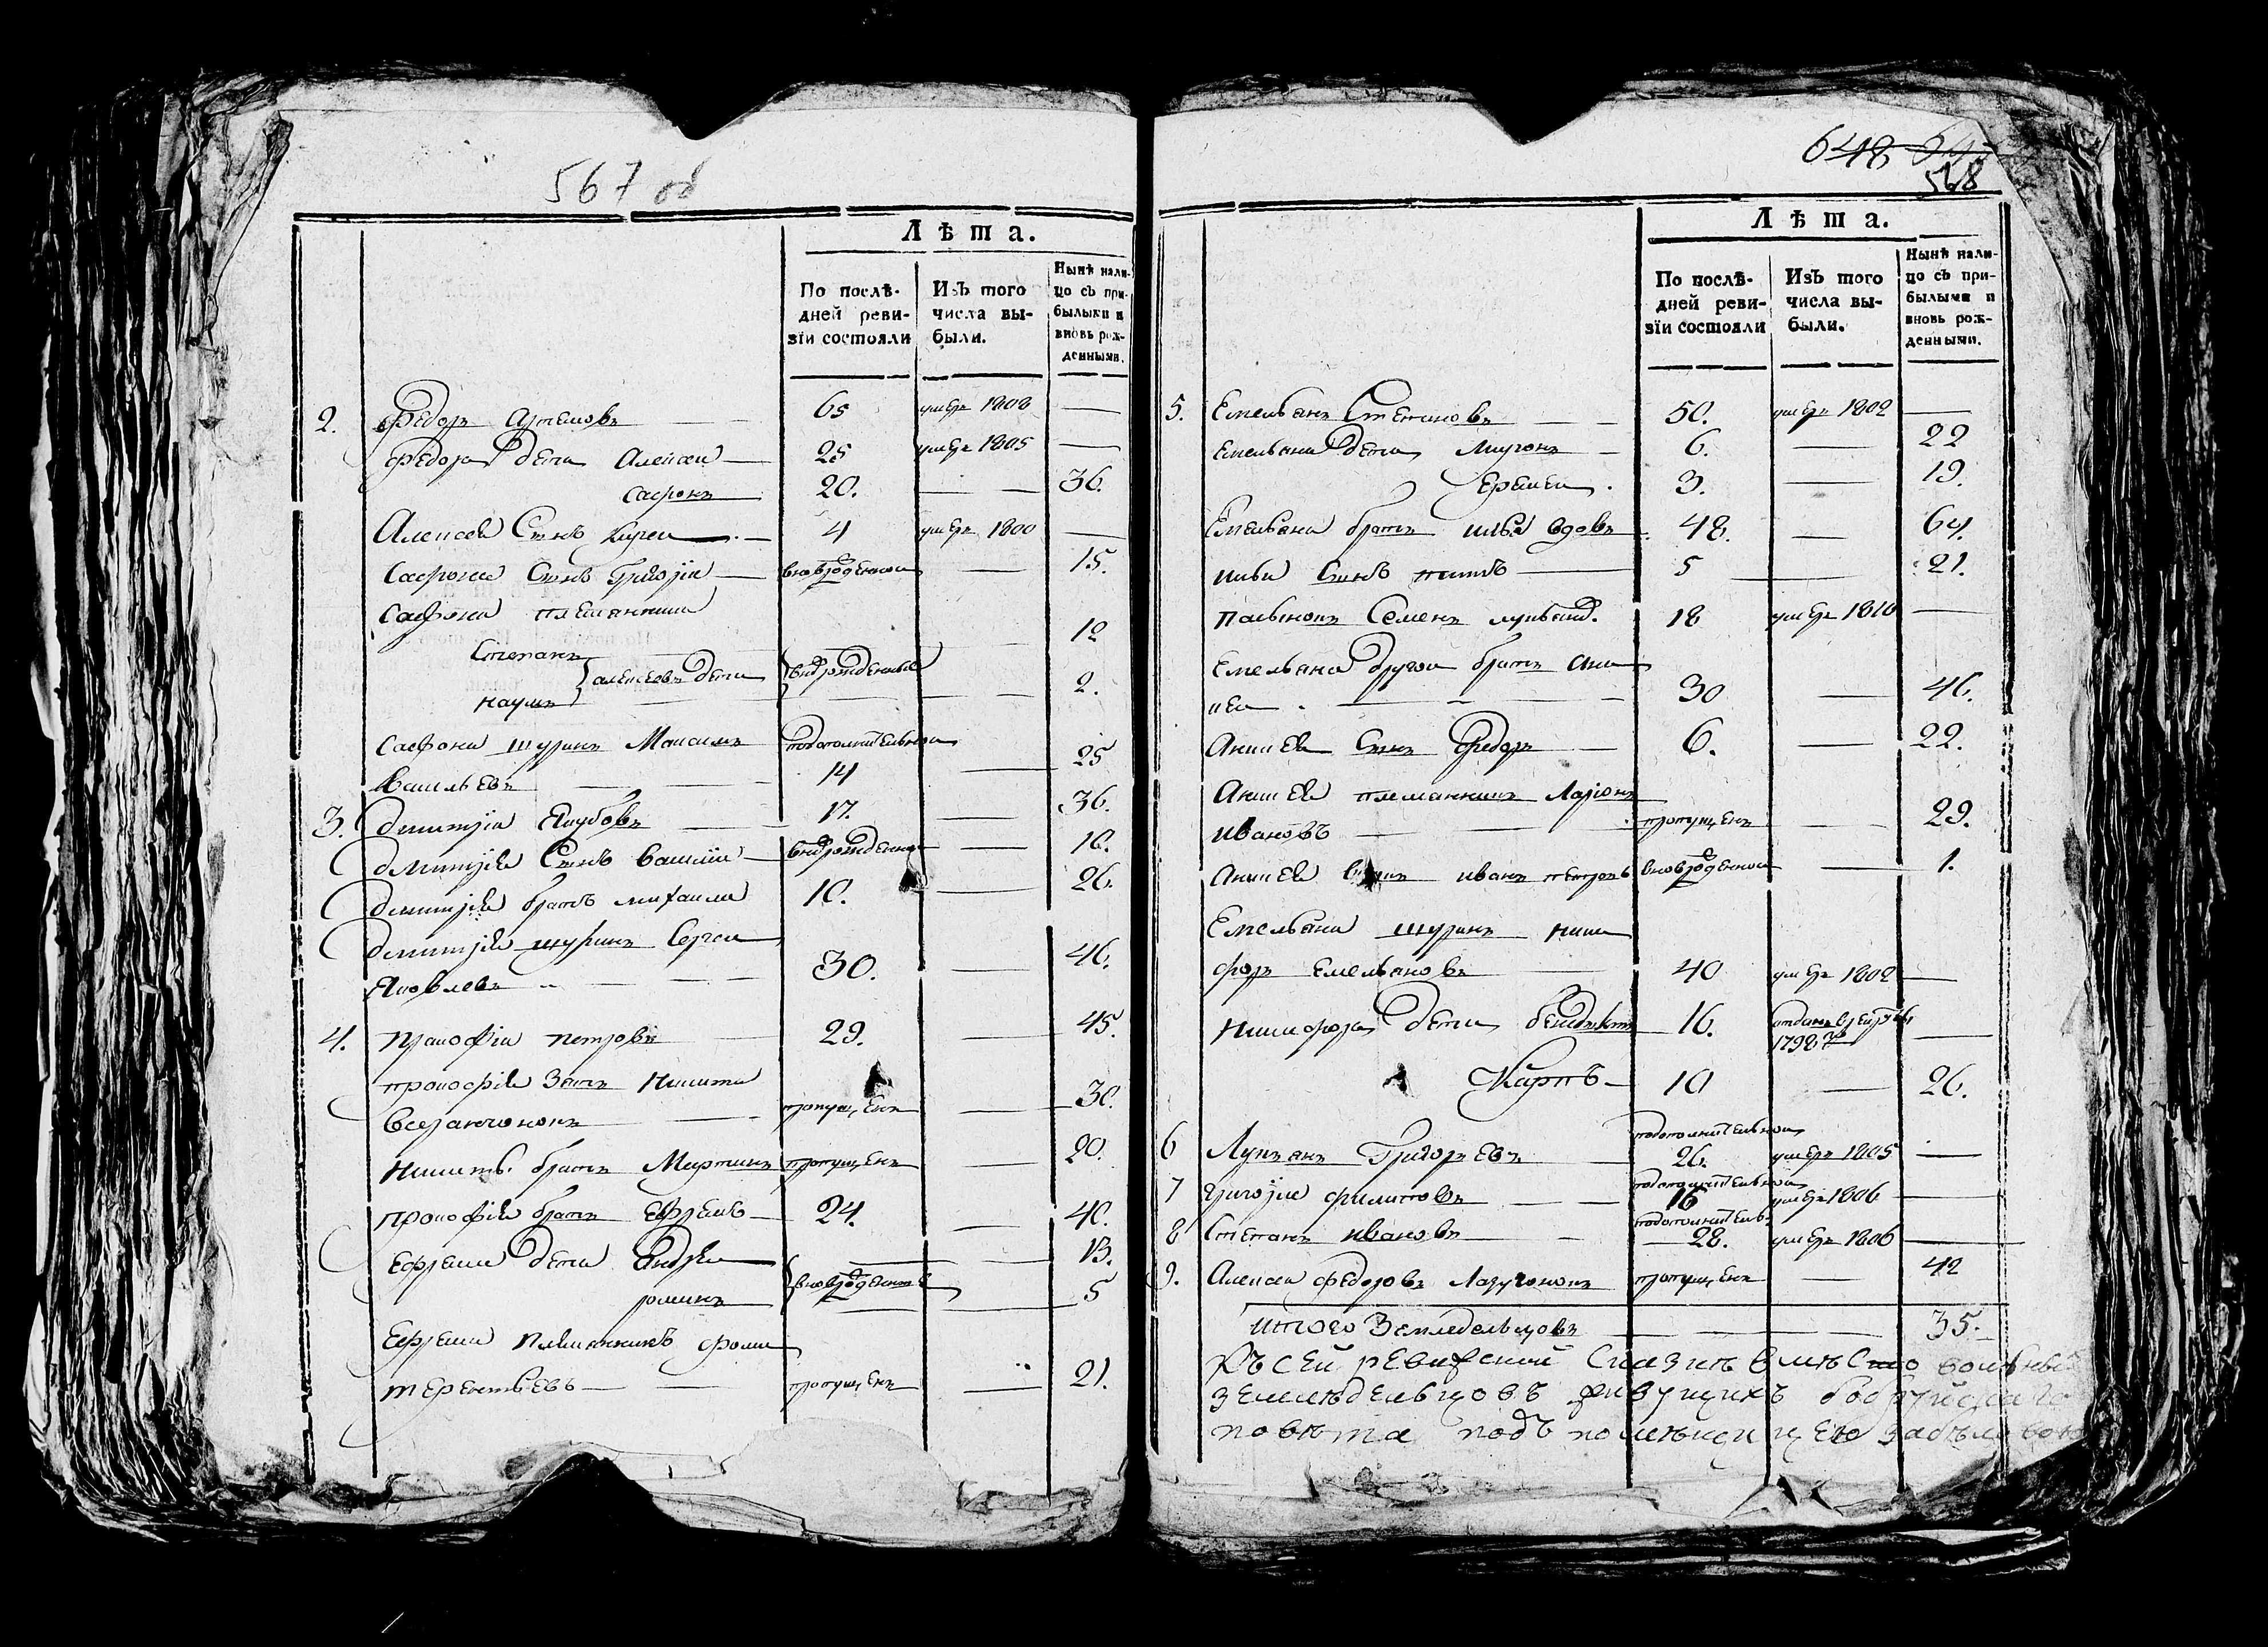 567 об
Лѣта.
По послѣ-
дней реви-
зїи состояли
Изъ того
числа вы-
были.
Нынѣ нали-
цо съ при-
былыми и
вновь рож-
денными.
2. Федоръ Артемовъ — 65 умеръ 1808 —
Федора дети Алексей — 25 умеръ 1805 —
Сафронъ 20. — 36.
Алексея Сынъ — 4 умеръ 1800 —
Сафрона Сынъ Григорїй — вновьрожденной — 15.
Сафрона племянники
Степанъ — 12
алексеевы дети вновьрожденные
Наумъ — 2.
Сафрона шуринъ Максимъ подополнительной
Васильевъ — 14 — 25
3. Дмитрїй Якубовъ — 17. — 36.
Дмитрїя Сынъ Василїй — вновьрожденной — 10.
Дмитрїя братъ михайла 10. — 26.
Дмитрїя шуринъ Сергей
Яковлевъ — 30. — 46.
4. Прокофїй петровъ 29. — 45.
прокофїя Зять Никита
пропущенъ — 30.
Никиты братъ Мартинъ пропущенъ — 20.
прокофїя братъ Ефремъ — 24. — 40.
Ефрема дети Андрей — 13.
вновьрожденные
романъ — 5
Ефрема племянникъ фома
терентьевъ — пропущенъ — 21.
648
568
Лѣта.
По послѣ-
дней реви-
зїи состояли
Изъ того
числа вы-
были.
Нынѣ нали-
цо съ при-
былыми и
вновь рож-
денными.
5. Емельянъ Степановъ — 50. умеръ 1802 —
Емельяна дети Миронъ — 6. — 22
Еремей. 3. — 19.
Емельяна братъ илья вдовъ 48. — 64.
ильи Сынъ — 5 — 21.
Семенъ 18 умеръ 1810 —
Емельяна другой братъ Ани
кей — 30 — 46.
Аникея Сынъ Федоръ — 6. — 22.
Аникея племянникъ Ларїонъ
Ивановъ — пропущенъ — 29.
Аникея иванъ петровъ вновьрожденной — 1.
Емельяна шуринъ ники
форъ Емельяновъ — 40 умеръ 1802 —
Никифора дети бенедиктъ 16. отданъ врекруты
1798 го —
Карпъ — 10 — 26.
подополнительной
6 Лукьянъ Григорьевъ — 26. умеръ 1805 —
подополнительной
7 григорїй филиповъ — 16 умеръ 1806 —
подополнитель.
8 Степанъ ивановъ — 28. умеръ 1806 —
9. Алексей федоровъ Лазучонокъ пропущенъ — 42
итого Земледельцовъ — 35.
Къ сей ревижской Сказке вместо вольныхъ
земледельцовъ живущихъ бобруйскаго
повета подъ помещицею